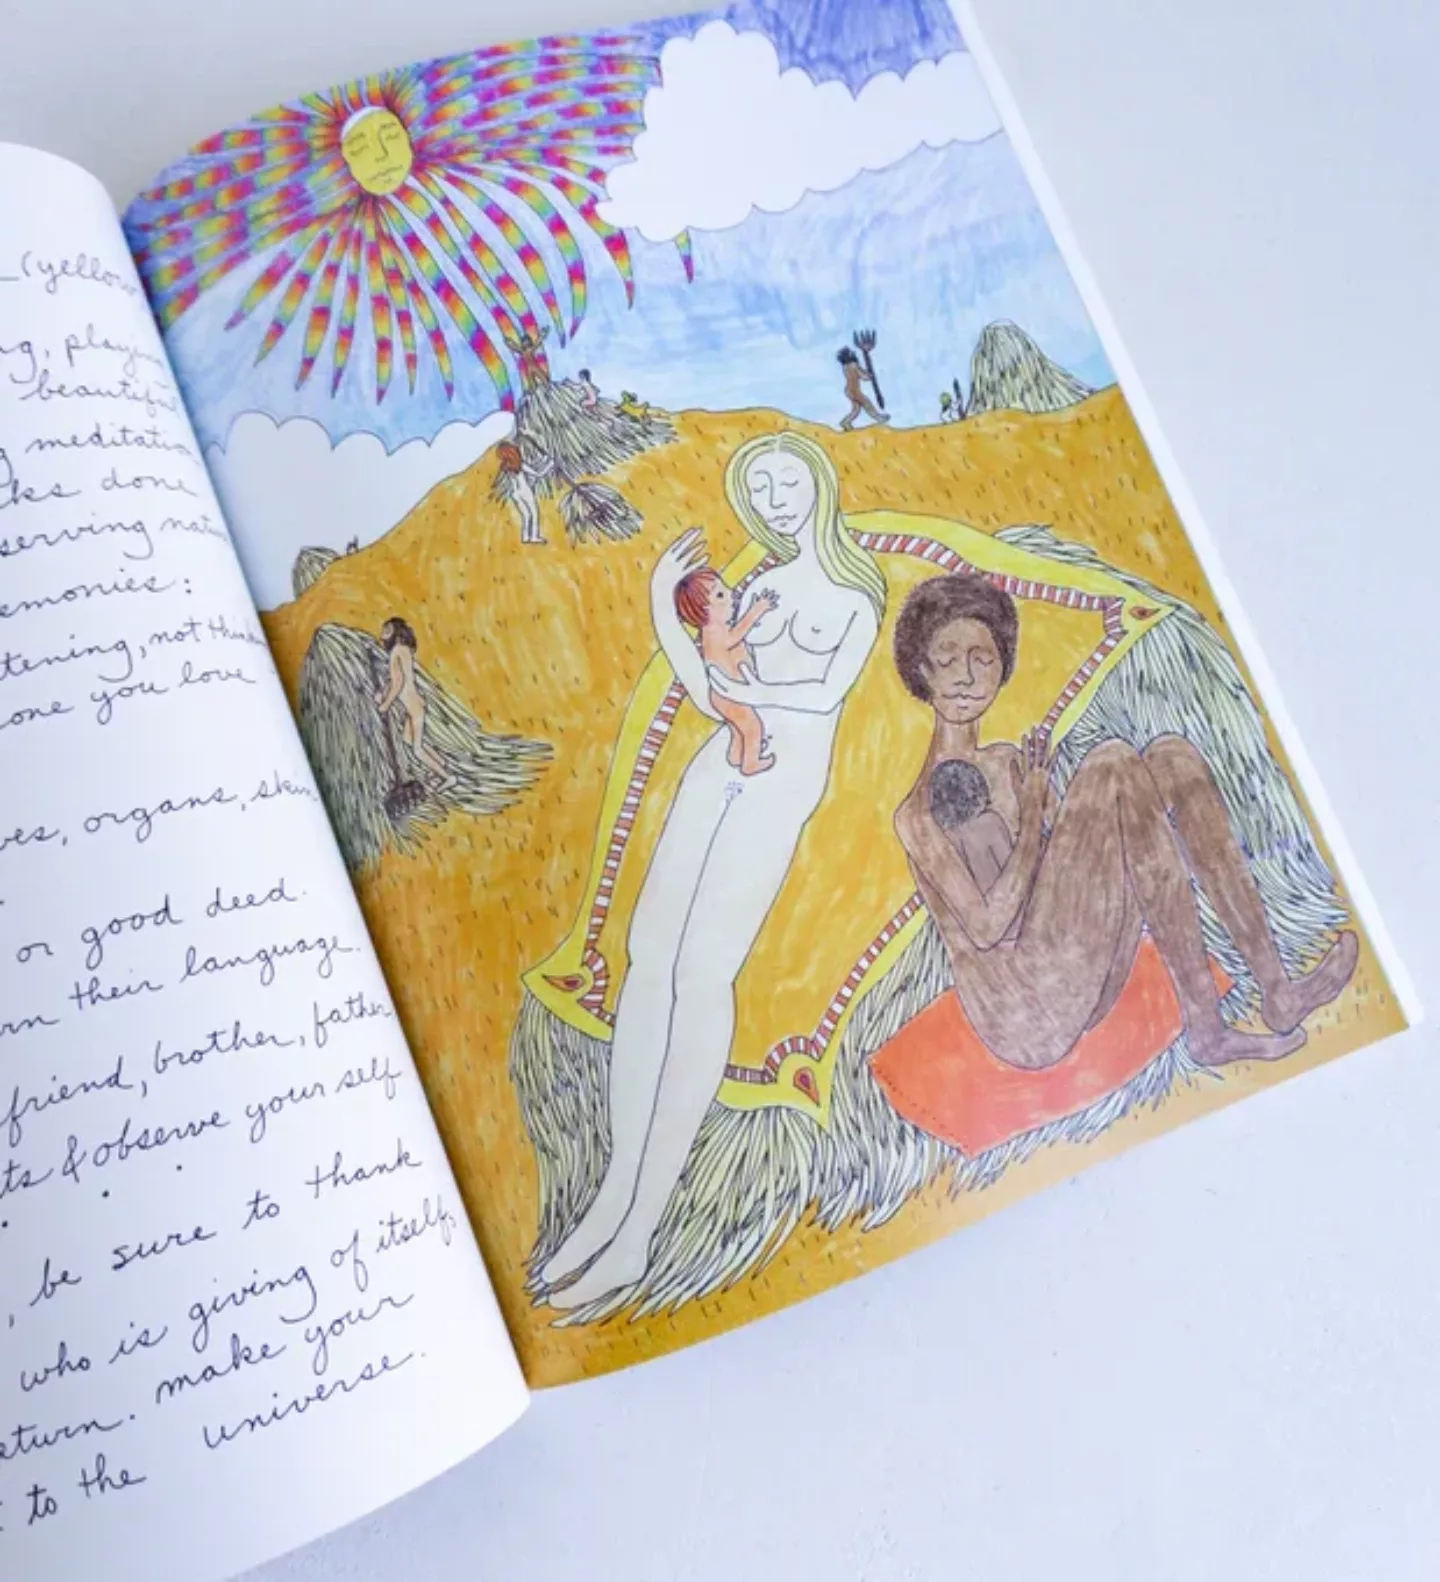 (yellow
playing
beautiful
meditation
done
serving nature
:
tening, not thinkin
one you love
organs, skin,
or good deed.
their language.
friend, brother, father
& observe your self
, be sure to thank
who is giving of itself,
eturn. make your
to the universe.